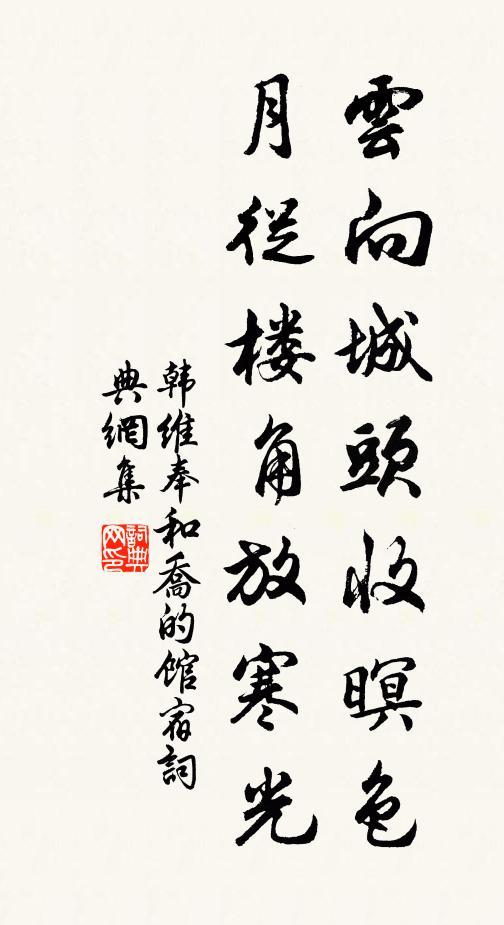 雲向城頭收暝色
月從楼角放寒光
韩維奉和喬的館宿詞
典網集
詞典网印